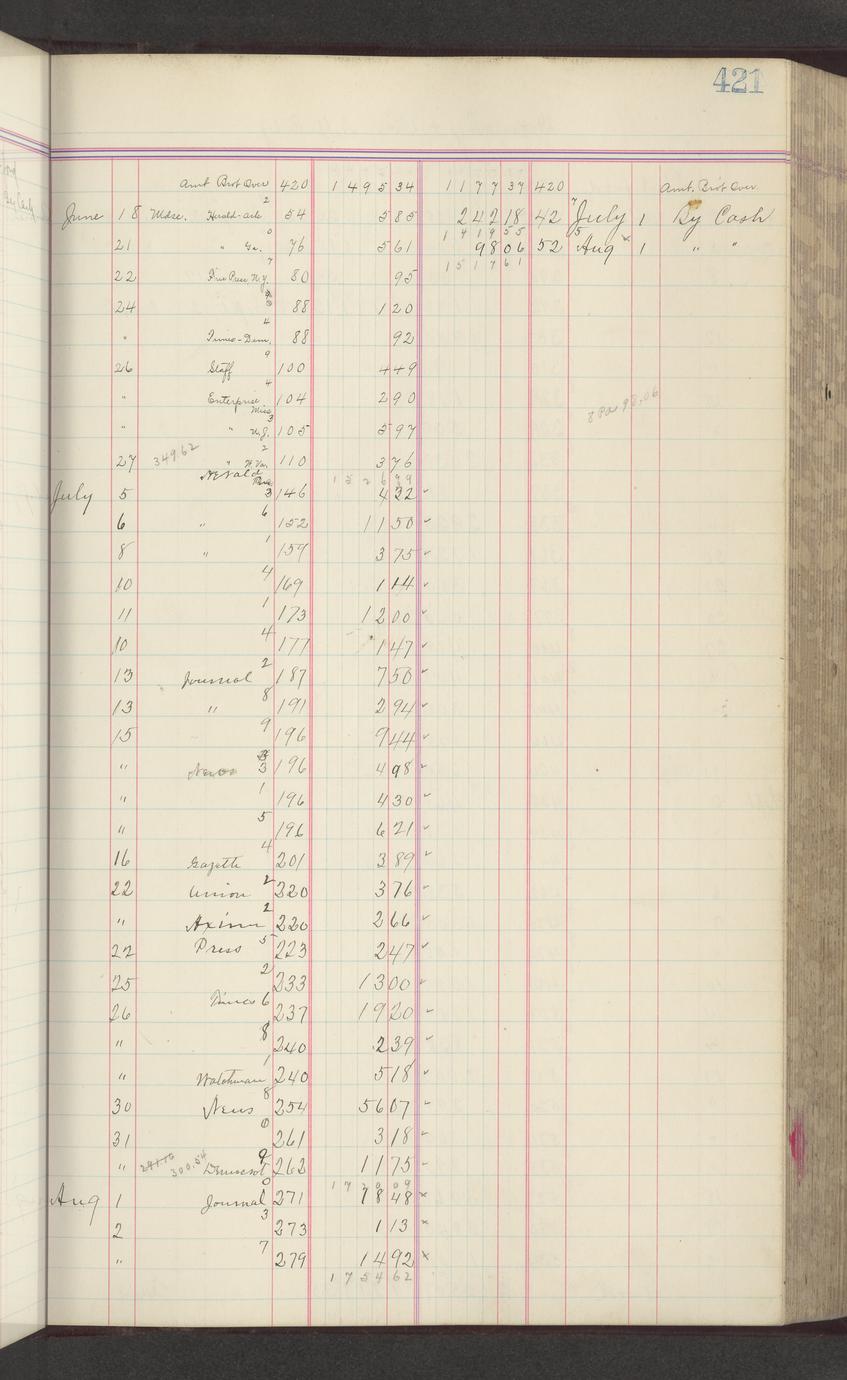 421
Amt Brot Over 420 1495 34 1177 37 420 Amt. Brot Over
June 18 Mdse. Herald-ark 2 54 5 85 242 18 42 7 July 1 By Cash
1419 55
21 " Ga. 0 76 5 61 98 06 52 5 Aug x 1 " "
1517 61
22 Free Press N.J. 7 80 95
24 88 1 20
" Times-Dem. 4 88 92
26 Staff 9 100 4 49
" Enterprise Miss 4 104 2 90
8 Pa 98.06
" " N.J. 3 105 5 97
27 349.62 " W.Va. 2 110 3 76
1526 99
July 5 Herald 3 146 4 32 ✓
6 " 6 152 11 50 ✓
8 " 1 157 3 75 ✓
10 4 169 1 14 ✓
11 1 173 12 00 ✓
10 4 177 1 47 ✓
13 Journal 2 187 7 50 ✓
13 " 8 191 2 94 ✓
15 9 196 9 44 ✓
" News 3 196 4 98 ✓
" 1 196 4 30 ✓
" 5 196 6 21 ✓
16 Gazette 4 201 3 89 ✓
22 Union 2 220 3 76 ✓
" Axiom 2 220 2 66 ✓
22 Press 5 223 2 47 ✓
25 2 233 13 00 ✓
26 Times 6 237 19 20 ✓
" 8 240 2 39 ✓
" Watchman 1 240 5 18 ✓
30 News 8 254 56 07 ✓
31 0 261 3 18 ✓
" 300.54 Democrat 9 262 11 75 ✓
1720 09
Aug 1 Journal 0 271 18 48 x
2 3 273 1 13 x
" 7 279 14 92 x
1754 62